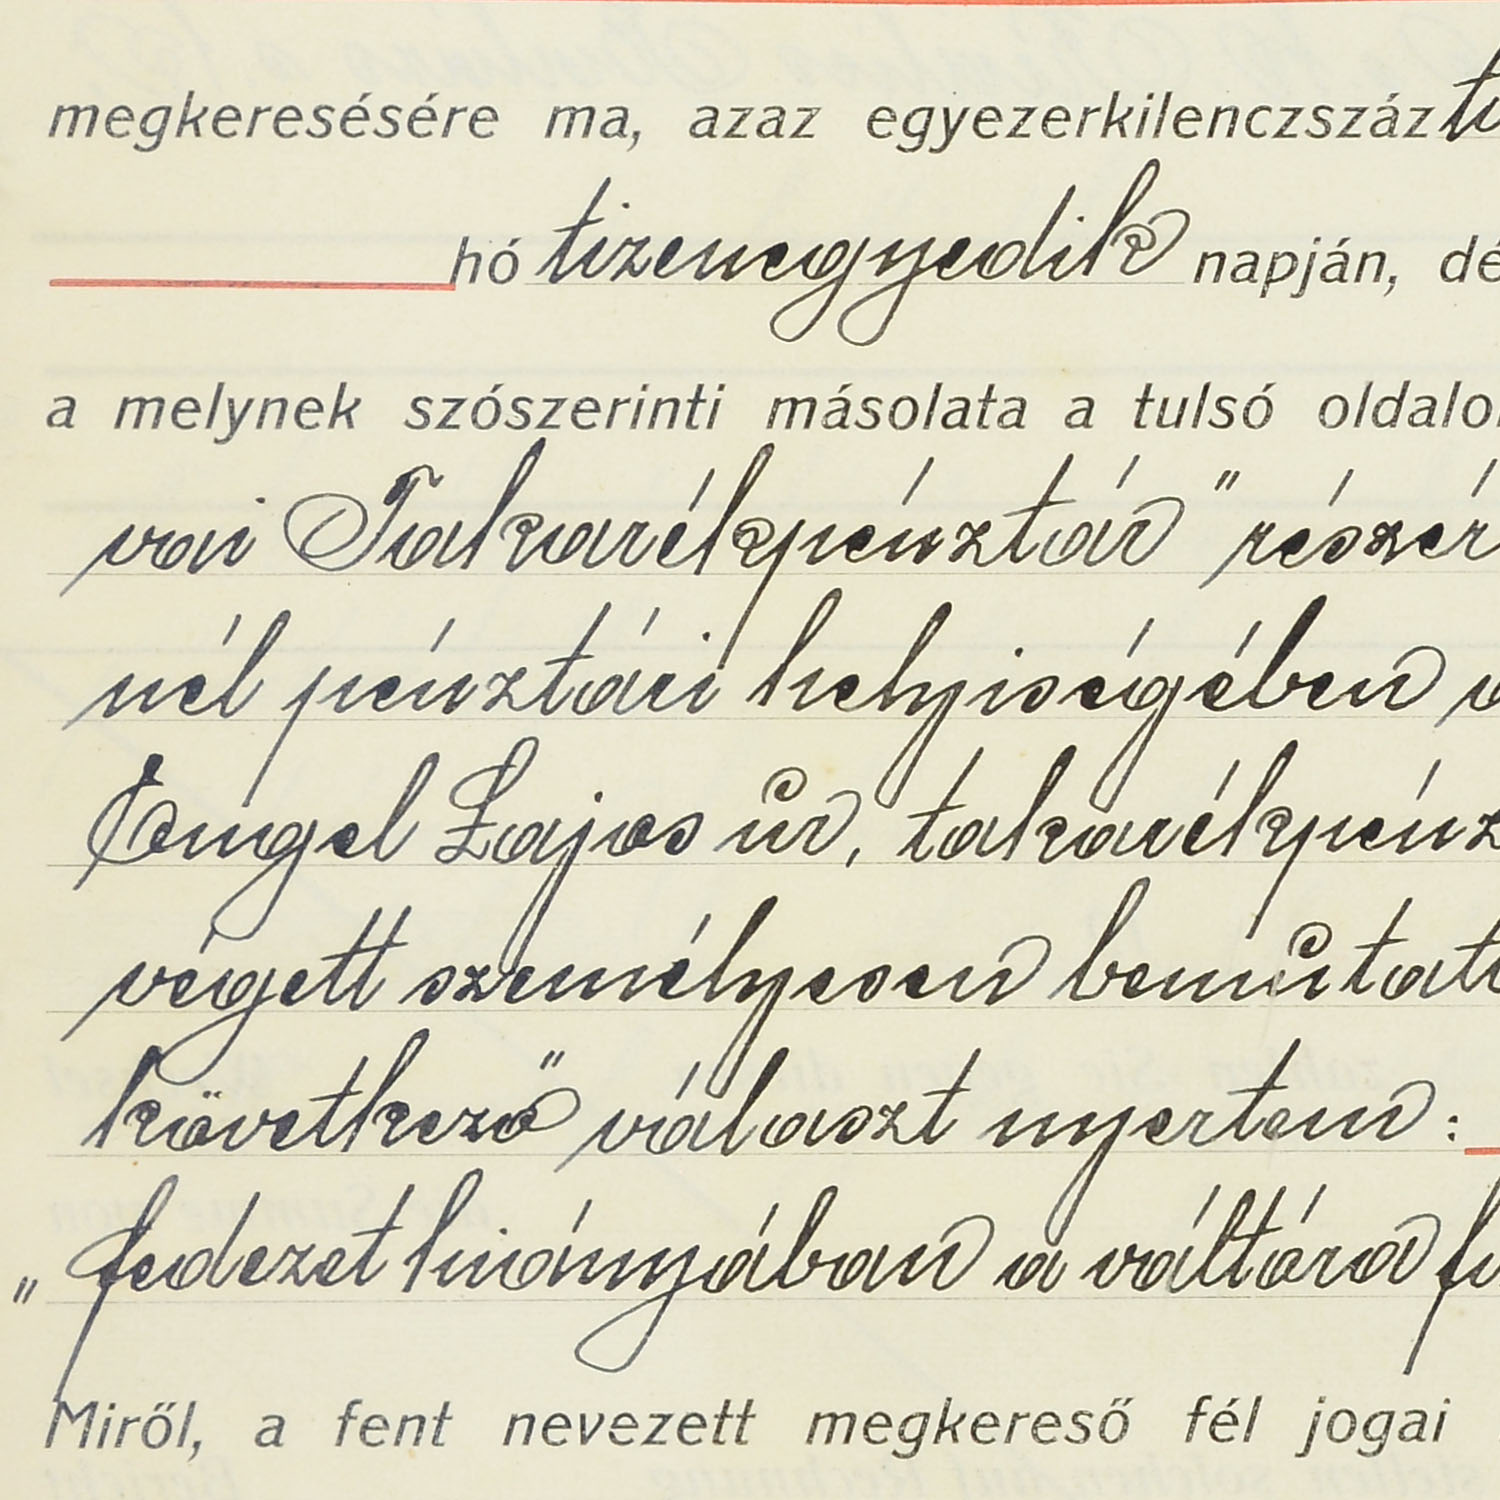 megkeresésére ma, azaz egyezerkilenczszáz
hó tizenegyedik napján, dé
a melynek szószerinti másolata a tulsó oldalo
vai Takarékpénztár" részér
nél pénztári helyiségében
Engel Lajos úr, takarékpénz
végett személyesen bemutat
következő választ nyertem:
„fedezet hiányában a váltóra
Miről, a fent nevezett megkereső fél jogai